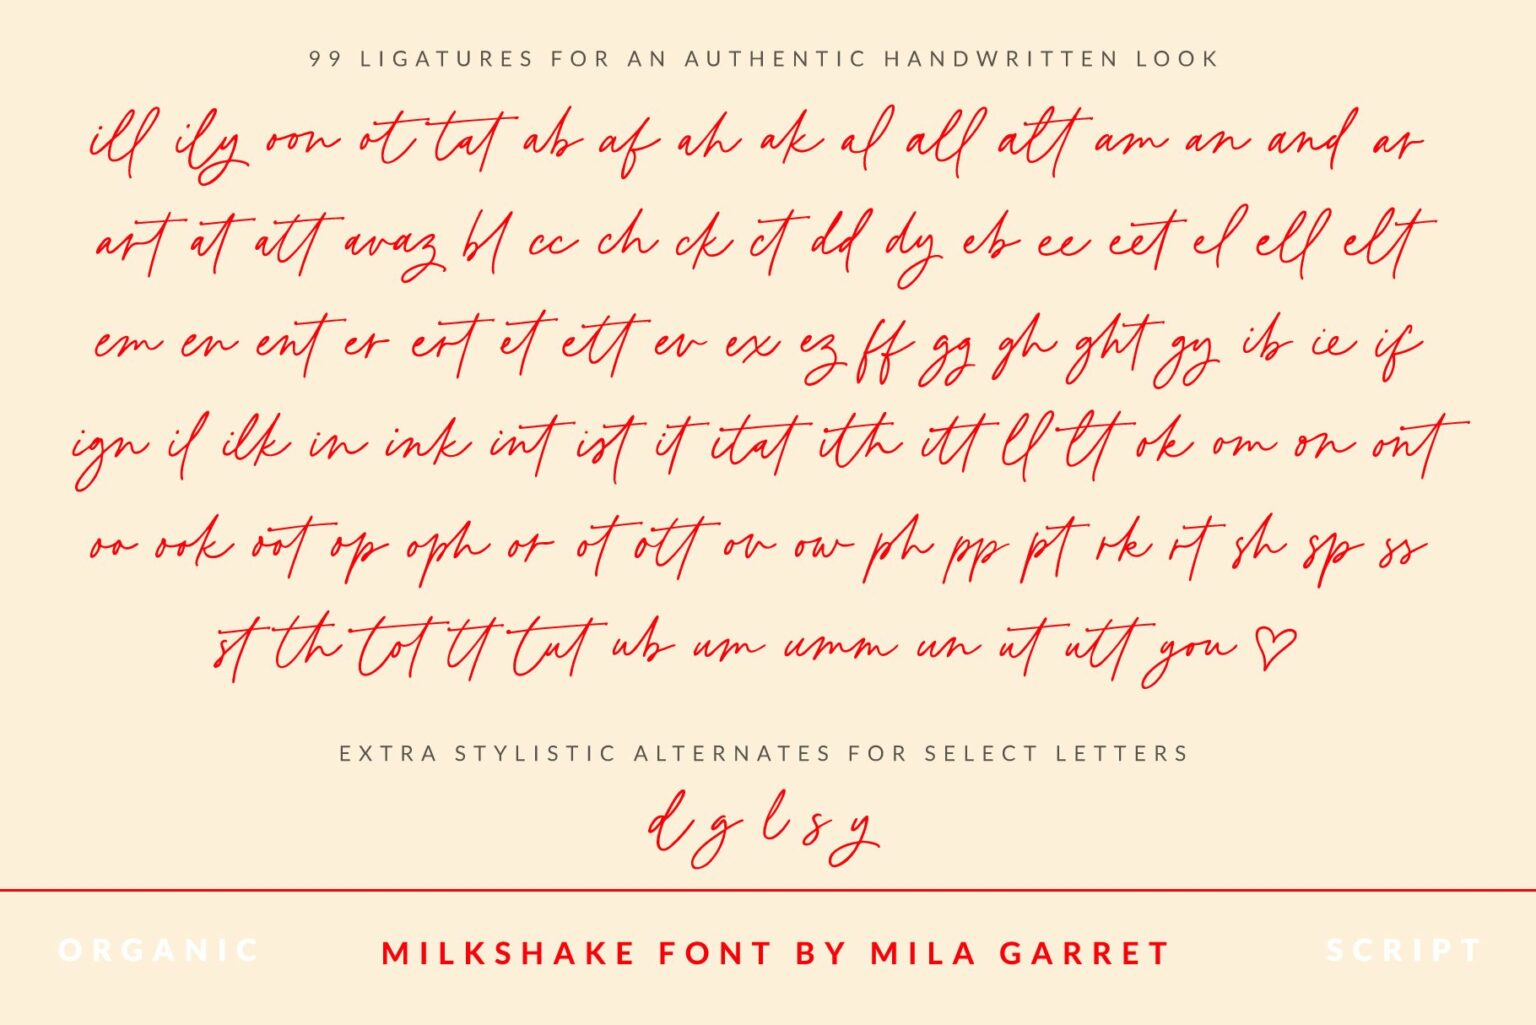 99 LIGATURES FOR AN AUTHENTIC HANDWRITTEN LOOK
ill ily oon ot tat ab af ah ak al all alt am an and ar
art at att av az bl cc ch ck ct dd dy eb ee eet el ell elt
em en ent er ert et ett ev ex ez ff gg gh ght gy ib ie if
ign il ilk in ink int ist it itat ith itt ll lt ok om on ont
oo ook oot op oph or ot ott ov ow ph pp pt rk rt sh sp ss
st th tot tt tut ub um umm un ut utt you ♡
EXTRA STYLISTIC ALTERNATES FOR SELECT LETTERS
d g l s y
ORGANIC MILKSHAKE FONT BY MILA GARRET SCRIPT